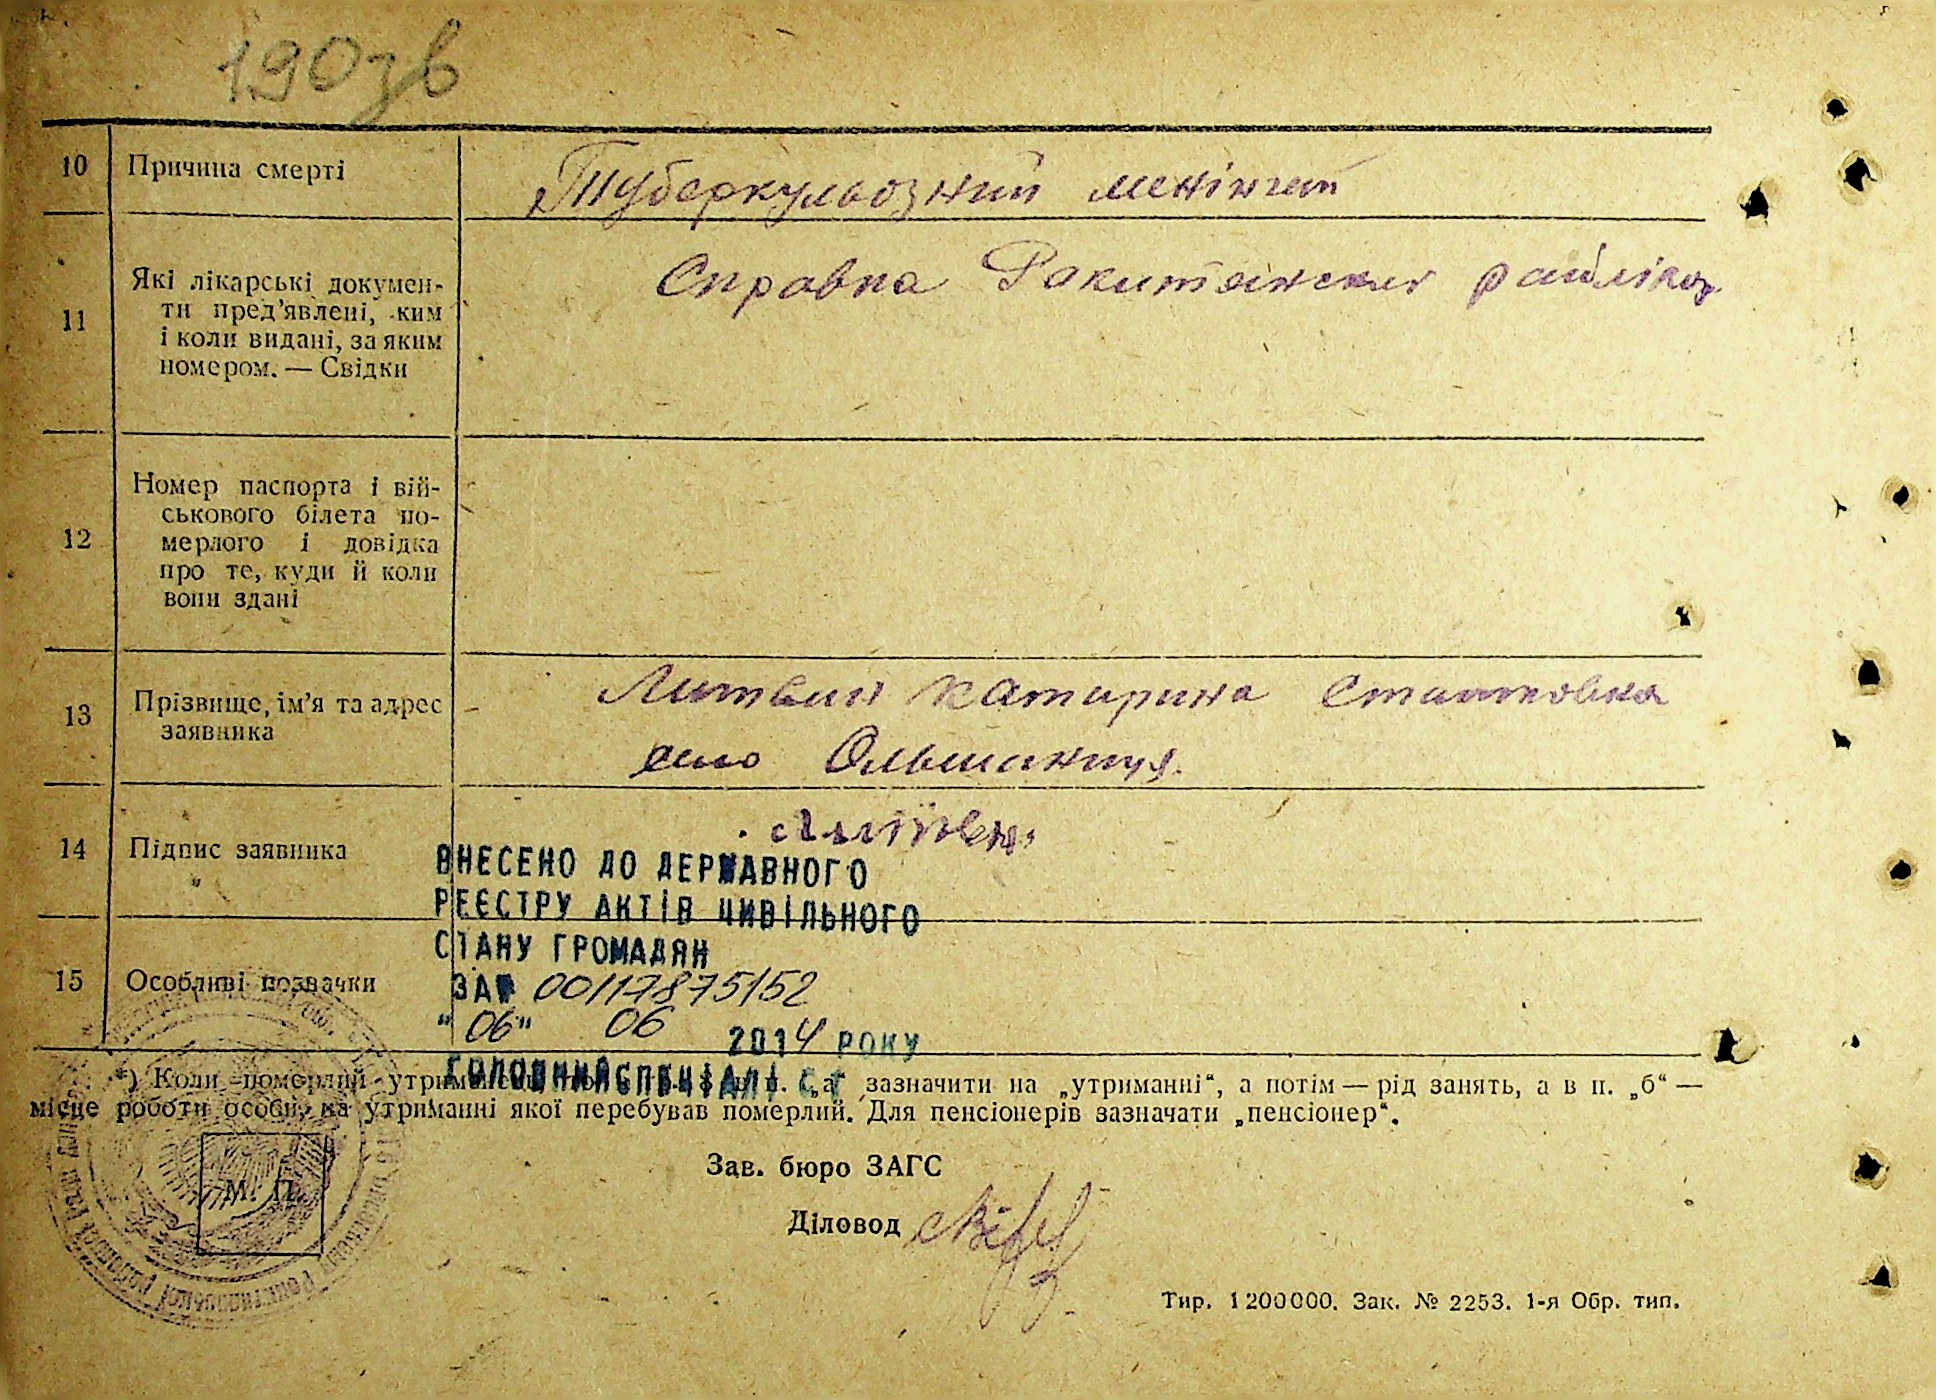 190зв
10 Причина смерті
Туберкульозний менінгит
11 Які лікарські докумен-
ти пред’явлені, ким
і коли видані, за яким
номером. — Свідки
Справка Ракитянской райлікар
12 Номер паспорта і вій-
ськового білета по-
мерлого і довідка
про те, куди й коли
вони здані
13 Прізвище, ім’я та адрес
заявника
Литвин Катирина
село Ольшаниця.
14 Підпис заявника
ВНЕСЕНО ДО ДЕРЖАВНОГО
РЕЄСТРУ АКТІВ ЦИВІЛЬНОГО
СТАНУ ГРОМАДЯН
15 Особливі позначки
ЗА № 00117875152
"06" 06 2014 РОКУ
ГОЛОВНИЙ СПЕЦІАЛІСТ
*) Коли померлий „а“ зазначити на „утриманні“, а потім — рід занять, а в п. „б“ —
місце роботи особи, на утриманні якої перебував померлий. Для пенсіонерів зазначати „пенсіонер“.
Зав. бюро ЗАГС
М. П.
Діловод
Тир. 1200000. Зак. № 2253. 1-я Обр. тип.